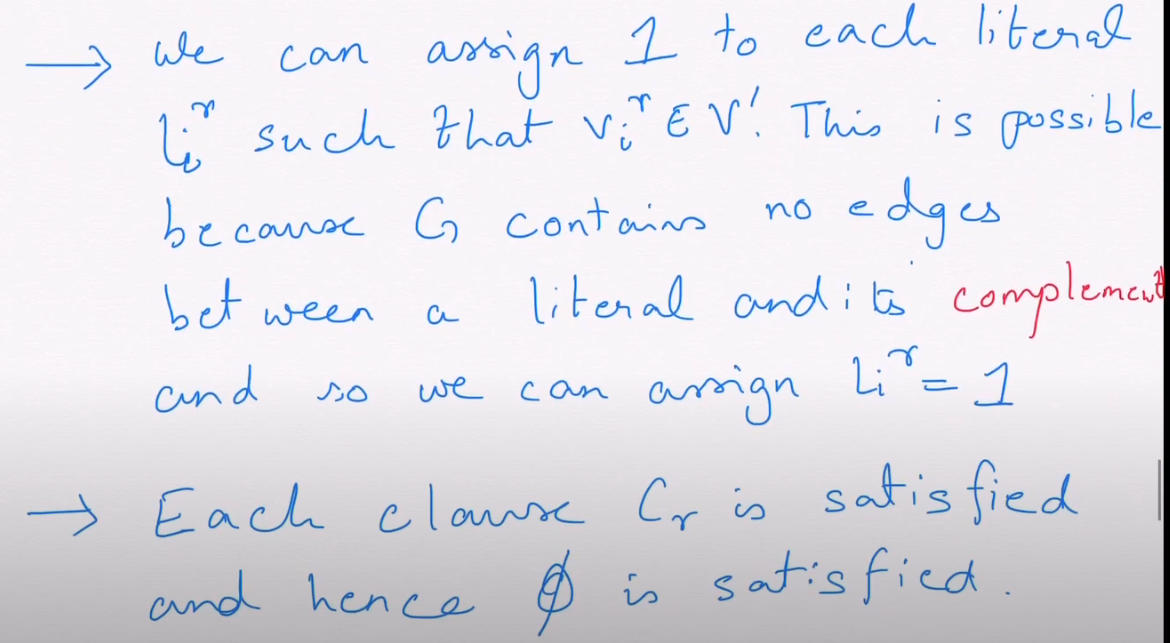 → We can assign 1 to each literal
lᵢʳ such that vᵢʳ ∈ V'. This is possible
because G contains no edges
between a literal and its complement
and so we can assign lᵢʳ = 1
→ Each clause Cᵣ is satisfied
and hence ϕ is satisfied.